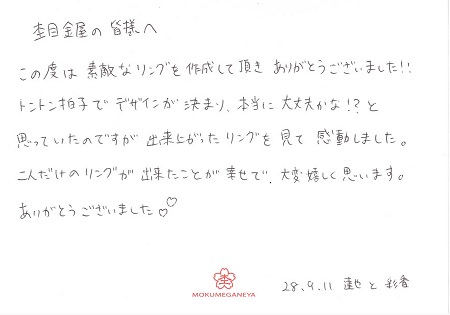 杢目金屋の皆様へ
この度は素敵なリングを作成して頂きありがとうございました!!
トントン拍子でデザインが決まり、本当に大丈夫かな!?と
思っていたのですが出来上がったリングを見て感動しました。
二人だけのリングが出来たことが幸せで、大変嬉しく思います。
ありがとうございました♡♡
杢
MOKUMEGANEYA
28.9.11 達也と彩香